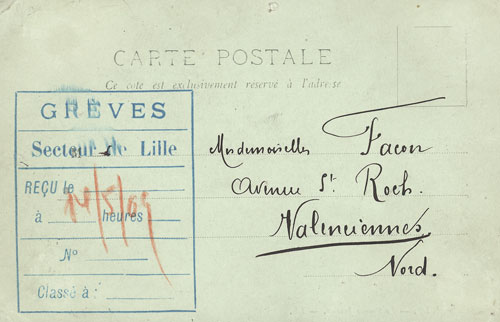 CARTE POSTALE
Ce coté est exclusivement reservé à l'adresse
GRÈVES
Secteur de Lille
REÇU le
14/5/09
à heures
N°
Classé à :
Mesdemoiselles Facon
Avenue St. Roch.
Valenciennes
Nord.